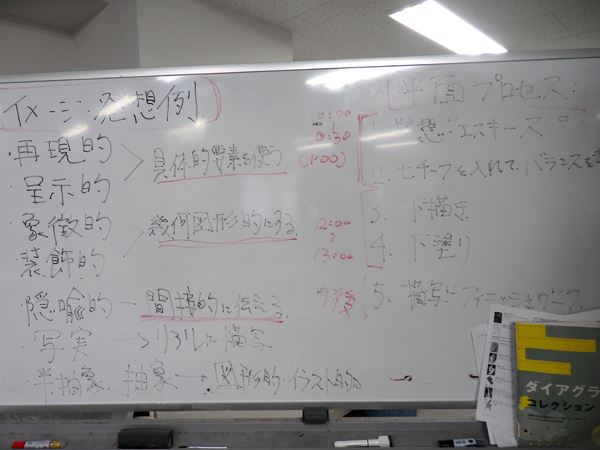 イメージ発想例
再現的
呈示的
具体的要素を使う
象徴的
装飾的
幾何図形的にする
隠喩的 → 間接的に伝える
写実 → リアルに描写
半抽象・抽象 → 図形的・イラスト的に
平面プロセス
10:00
0:30
(1:00)
1. 発想・エスキース
2. モチーフを入れて、バランスを
12:00
13:00
3. 下描き
4. 下塗り
午後
5. 描写・フィニッシュワーク
ダイアグラ
コレクション